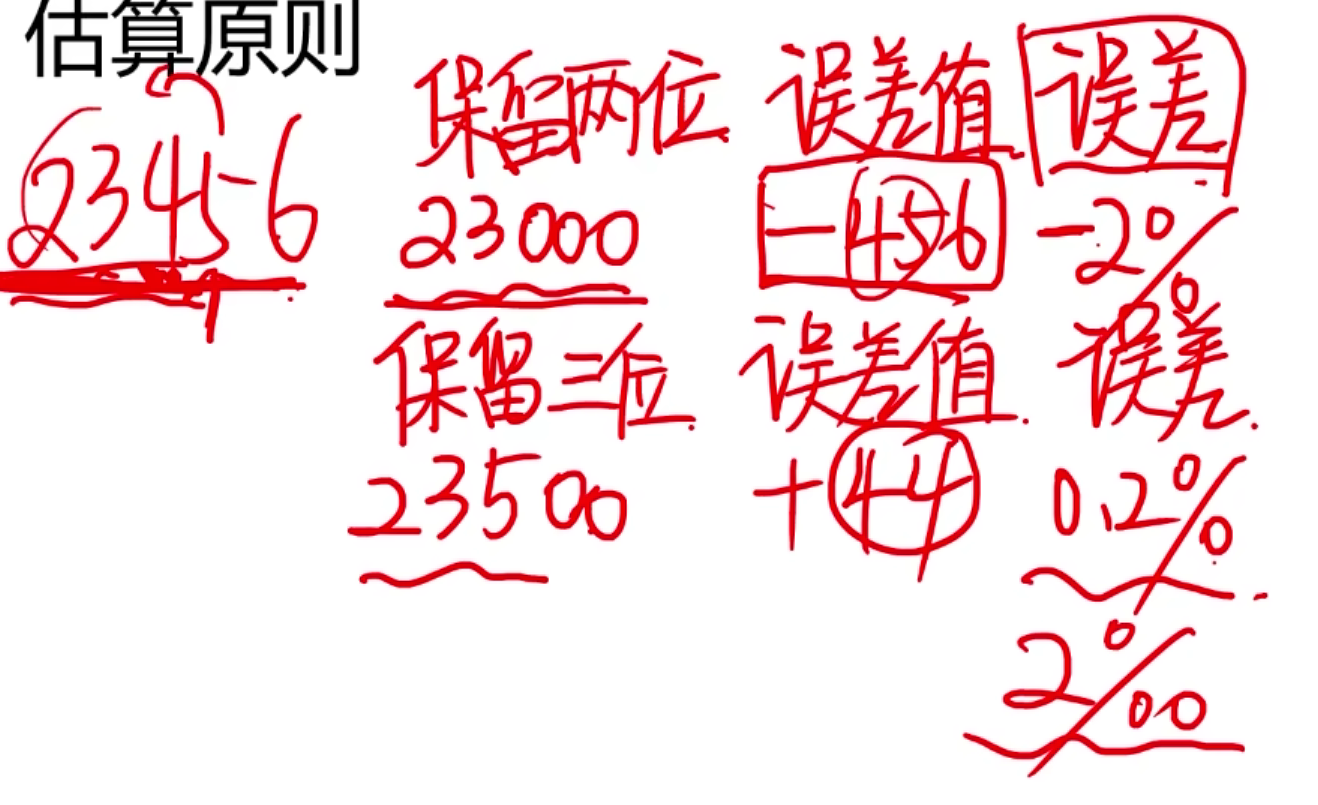 估算原则
23456
保留两位 误差值 误差
23000 -456 -2%
保留三位 误差值 误差
23500 +44 0.2%
2‰